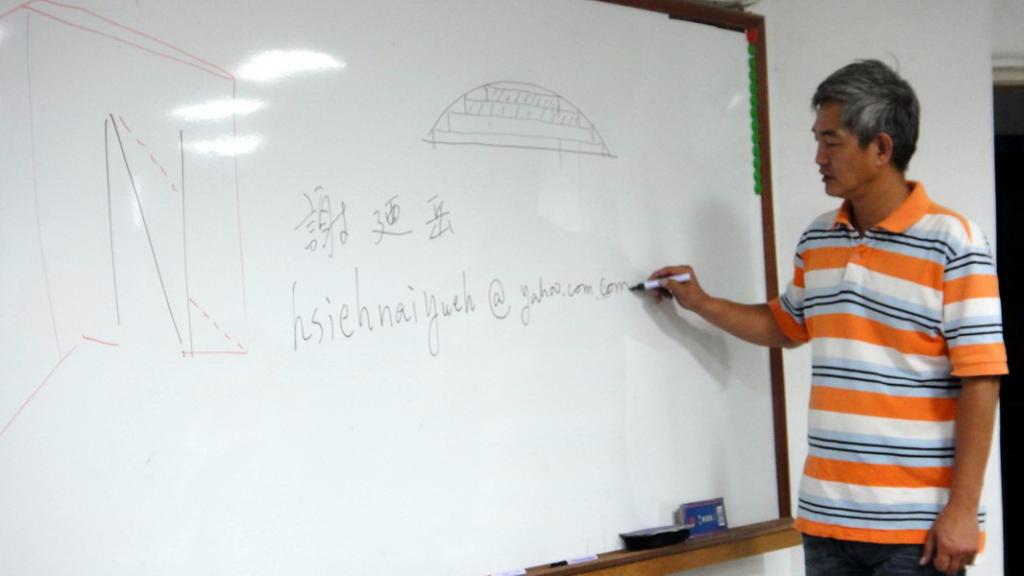 謝迺岳
hsiehnaiyueh@yahoo.com.com